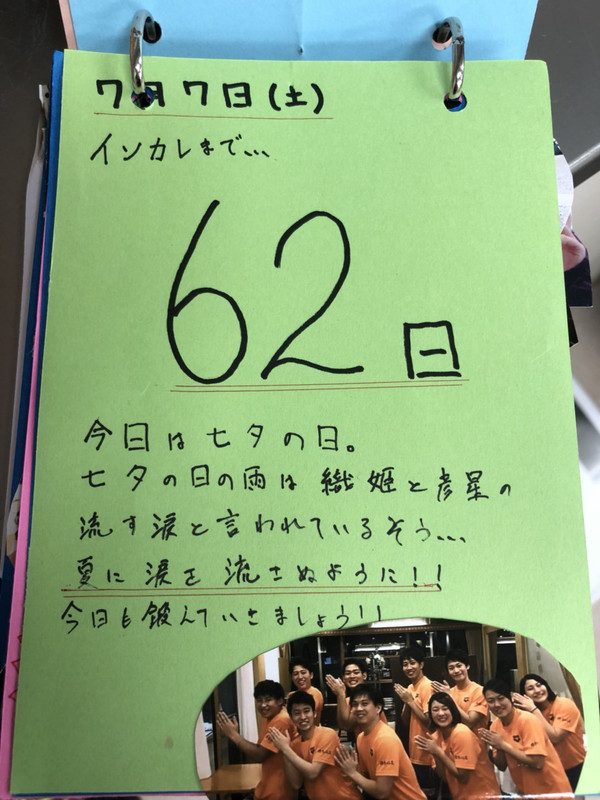 7月7日(土)
インカレまで...
62日
今日は七夕の日。
七夕の日の雨は織姫と彦星の
流す涙と言われているそう...
夏に涙を流さぬように!!
今日も鍛えていきましょう!!